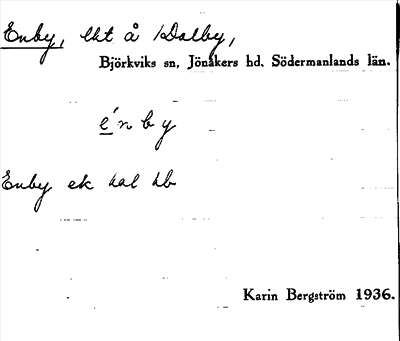 Enby, lht å Dalby,
Björkviks sn, Jönåkers hd. Södermanlands län.
é'n b y
Enby ek hal hb
Karin Bergström 1936.